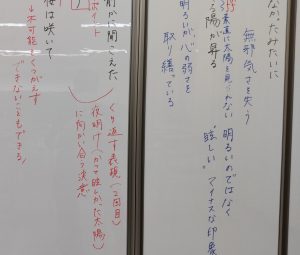 なかたみたいに
無邪気さを失う
素直に太陽を見られない
る陽が昇る
明るいのではなく
"眩しい" マイナスな印象
明るいが、心の弱さを
取り繕っている
前が聞こえた
ポイント
桜は咲いて
↓不可能をくつがえす
できないこともできる
くり返す表現(2回目)
夜明け(かつて眩しかった太陽)
に向かい合う決意